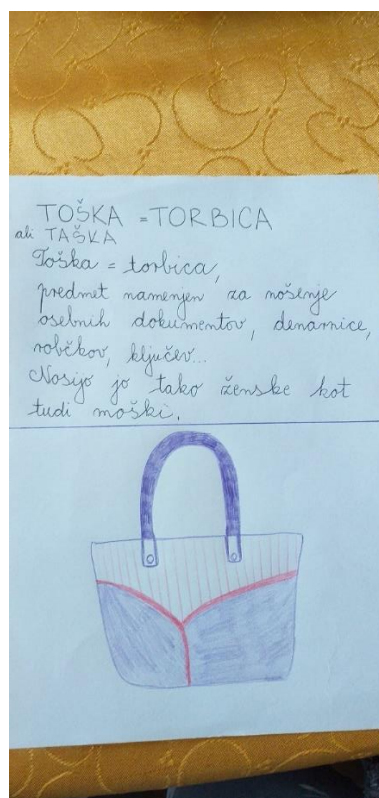 TOŠKA = TORBICA
ali TAŠKA
Toška = torbica,
predmet namenjen za nošenje
osebnih dokumentov, denarnice,
robčkov, ključev...
Nosijo jo tako ženske kot
tudi moški.